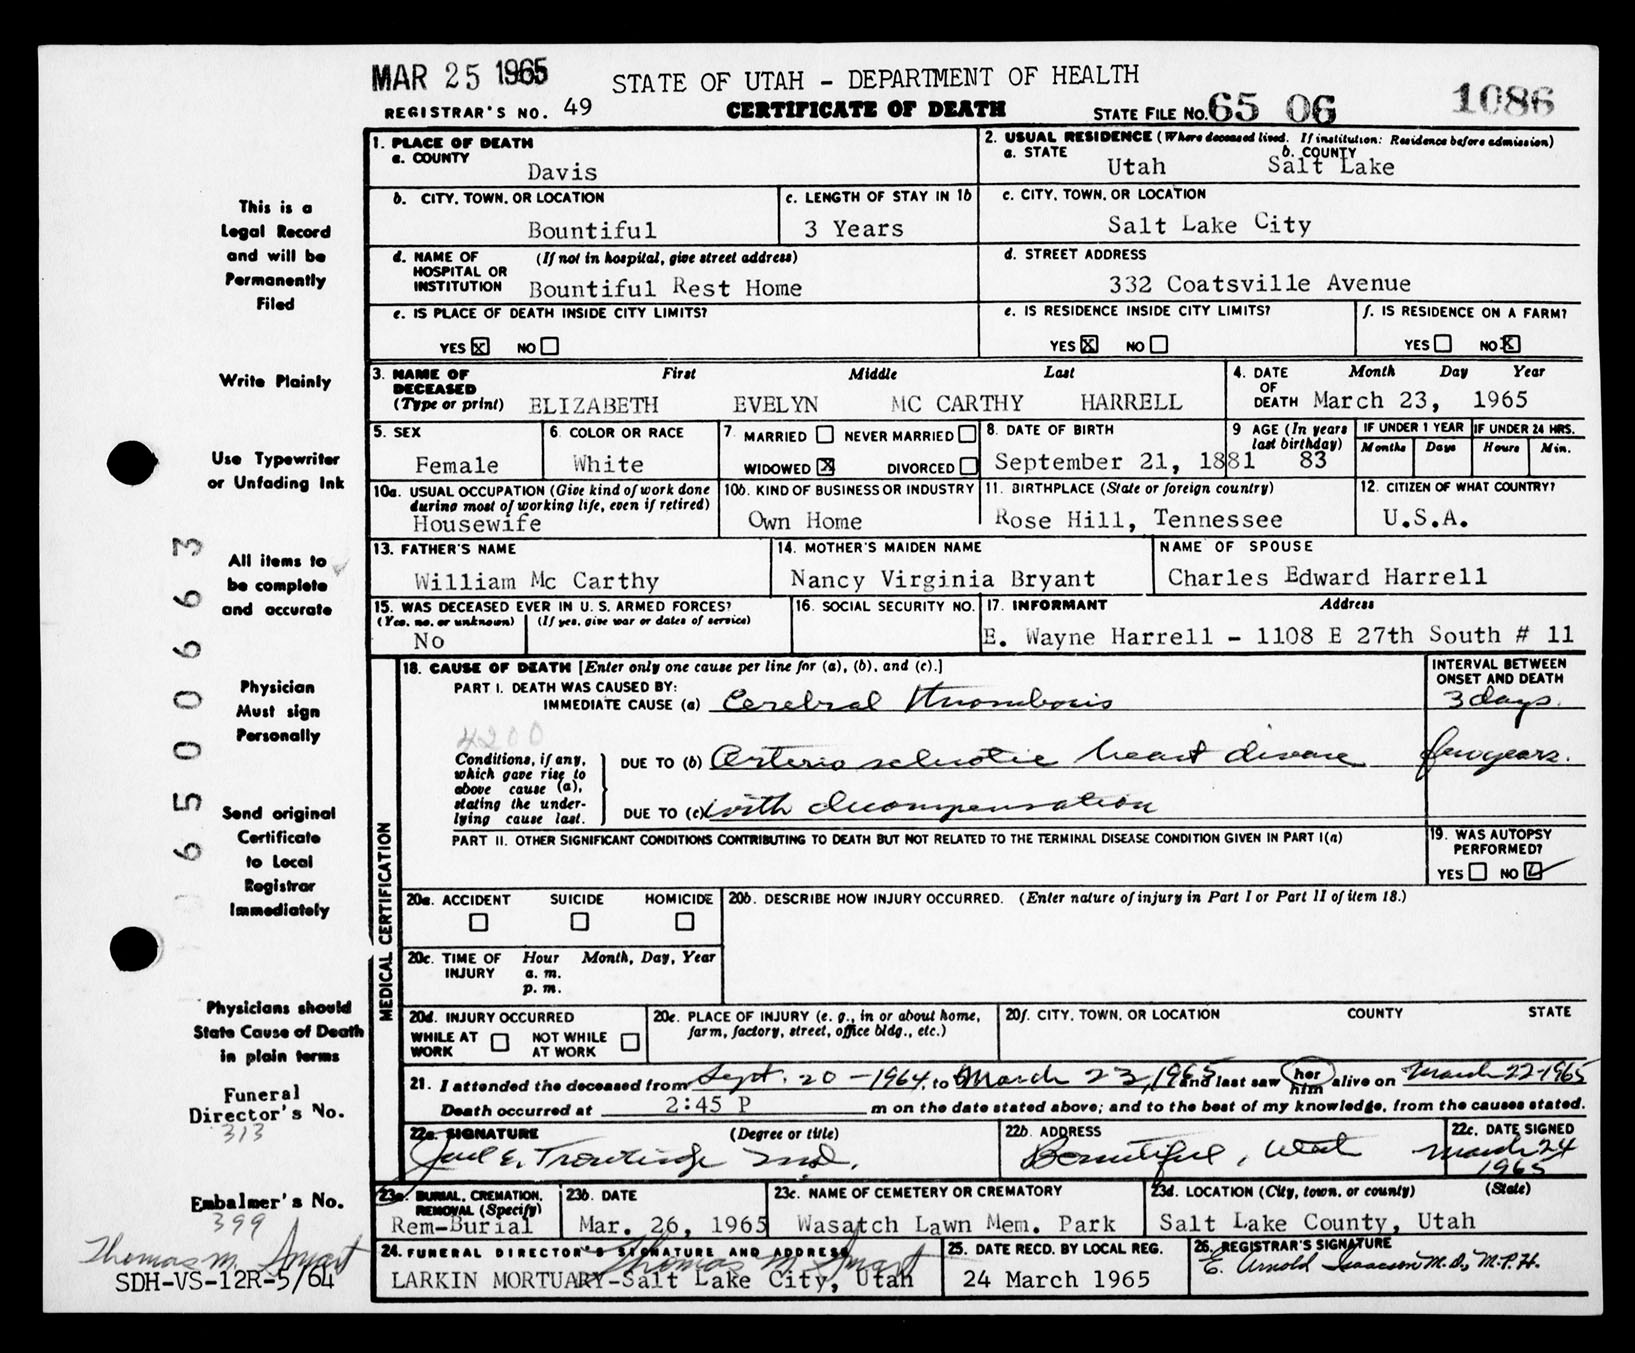 MAR 25 1965
STATE OF UTAH - DEPARTMENT OF HEALTH
REGISTRAR'S NO. 49
CERTIFICATE OF DEATH
STATE FILE NO. 65 06 1086
This is a
Legal Record
and will be
Permanently
Filed
Write Plainly
Use Typewriter
or Unfading Ink
All items to
be complete
and accurate
Physician
Must sign
Personally
Send original
Certificate
to Local
Registrar
Immediately
Physicians should
State Cause of Death
in plain terms
Funeral
Director's No.
313
Embalmer's No.
399
Thomas M. Smart
SDH-VS-12R-5/64
650 0663
1. PLACE OF DEATH
a. COUNTY
Davis
2. USUAL RESIDENCE (Where deceased lived. If institution: Residence before admission)
a. STATE
Utah
b. COUNTY
Salt Lake
b. CITY, TOWN, OR LOCATION
Bountiful
c. LENGTH OF STAY IN 1b
3 Years
c. CITY, TOWN, OR LOCATION
Salt Lake City
d. NAME OF HOSPITAL OR INSTITUTION
(If not in hospital, give street address)
Bountiful Rest Home
d. STREET ADDRESS
332 Coatsville Avenue
e. IS PLACE OF DEATH INSIDE CITY LIMITS?
YES X NO
e. IS RESIDENCE INSIDE CITY LIMITS?
YES X NO
f. IS RESIDENCE ON A FARM?
YES NO X
3. NAME OF DECEASED (Type or print)
First Middle Last
ELIZABETH EVELYN MC CARTHY HARRELL
4. DATE OF DEATH
Month Day Year
March 23, 1965
5. SEX
Female
6. COLOR OR RACE
White
7 MARRIED NEVER MARRIED
WIDOWED X DIVORCED
8. DATE OF BIRTH
September 21, 1881
9 AGE (In years last birthday)
83
IF UNDER 1 YEAR
Months Days
IF UNDER 24 HRS.
Hours Min.
10a. USUAL OCCUPATION (Give kind of work done during most of working life, even if retired)
Housewife
10b. KIND OF BUSINESS OR INDUSTRY
Own Home
11. BIRTHPLACE (State or foreign country)
Rose Hill, Tennessee
12. CITIZEN OF WHAT COUNTRY?
U.S.A.
13. FATHER'S NAME
William Mc Carthy
14. MOTHER'S MAIDEN NAME
Nancy Virginia Bryant
NAME OF SPOUSE
Charles Edward Harrell
15. WAS DECEASED EVER IN U. S. ARMED FORCES?
(Yes, no, or unknown) (If yes, give war or dates of service)
No
16. SOCIAL SECURITY NO.
17. INFORMANT Address
E. Wayne Harrell - 1108 E 27th South # 11
MEDICAL CERTIFICATION
18. CAUSE OF DEATH [Enter only one cause per line for (a), (b), and (c).]
PART I. DEATH WAS CAUSED BY:
IMMEDIATE CAUSE (a) Cerebral thrombosis
INTERVAL BETWEEN ONSET AND DEATH
3 days.
4200
Conditions, if any, which gave rise to above cause (a), stating the under-lying cause last.
DUE TO (b) Arterio sclerotic heart disease
few years.
DUE TO (c) with decompensation
PART II. OTHER SIGNIFICANT CONDITIONS CONTRIBUTING TO DEATH BUT NOT RELATED TO THE TERMINAL DISEASE CONDITION GIVEN IN PART I(a)
19. WAS AUTOPSY PERFORMED?
YES NO
20a. ACCIDENT SUICIDE HOMICIDE
20b. DESCRIBE HOW INJURY OCCURRED. (Enter nature of injury in Part I or Part II of item 18.)
20c. TIME OF INJURY
Hour Month, Day, Year
a. m.
p. m.
20d. INJURY OCCURRED
WHILE AT WORK NOT WHILE AT WORK
20e. PLACE OF INJURY (e. g., in or about home, farm, factory, street, office bldg., etc.)
20f. CITY, TOWN, OR LOCATION COUNTY STATE
21. I attended the deceased from Sept. 20 - 1964, to March 23, 1965 and last saw her him alive on March 22 - 1965
Death occurred at 2:45 P m on the date stated above; and to the best of my knowledge, from the causes stated.
22a. SIGNATURE (Degree or title)
M.D.
22b. ADDRESS
Bountiful, Utah
22c. DATE SIGNED
March 24
1965
23a. BURIAL, CREMATION, REMOVAL (Specify)
Rem-Burial
23b. DATE
Mar. 26, 1965
23c. NAME OF CEMETERY OR CREMATORY
Wasatch Lawn Mem. Park
23d. LOCATION (City, town, or county) (State)
Salt Lake County, Utah
24. FUNERAL DIRECTOR'S SIGNATURE AND ADDRESS
Thomas M. Smart
LARKIN MORTUARY-Salt Lake City, Utah
25. DATE RECD. BY LOCAL REG.
24 March 1965
26. REGISTRAR'S SIGNATURE
E. Arnold Isaacson M.D., M.P.H.